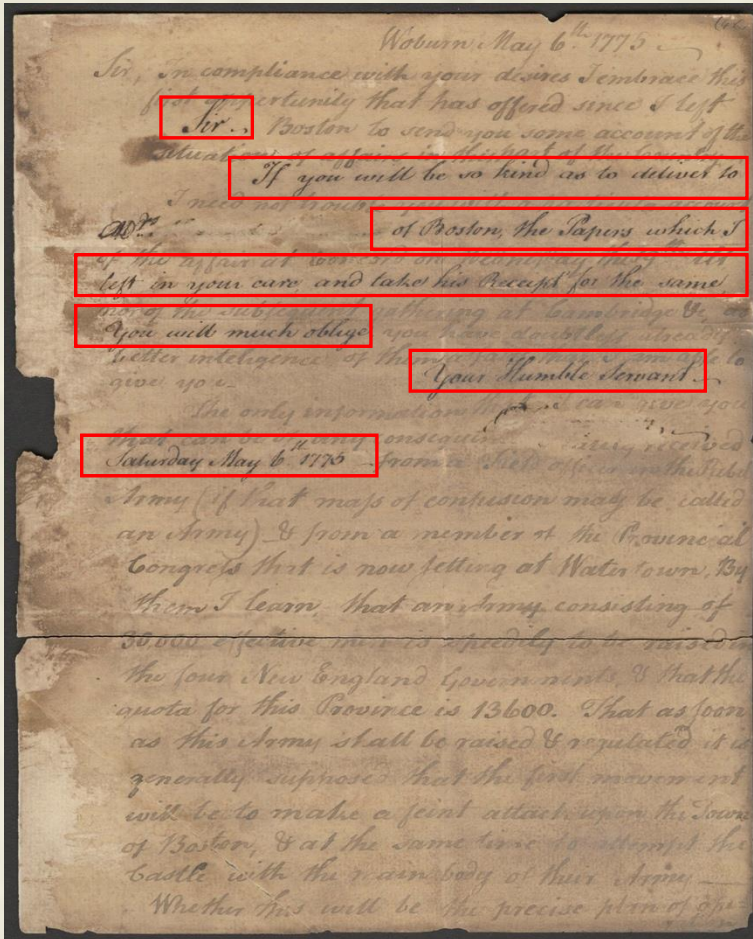 Woburn May 6th 1775
Sir, In compliance with your desires I embrace this
first opportunity that has offered since I left
Sir Boston to send you some account of the
situation of affairs in this part of the Country
If you will be so kind as to deliver to
I need not trouble you with a account
Mrs. of Boston, the Papers which I
of the affair at Concord on
left in your care, and take his Receipt for the same
nor of the subsequent gathering at Cambridge &c, as
You will much oblige you have doubtless already
better inteligence of them I am able to
Your Humble Servant
give you
The only information that I can give you
that can be of any consequence received
Saturday May 6th 1775 from a Field officer in the Rebel
Army (if that mass of confusion may be called
an Army) & from a member of the Provincial
Congress that is now setting at Watertown. By
them I learn, that an Army consisting of
30,000 effective men is speedily to be raised in
the four New England Governments, & that the
quota for this Province is 13600. That as soon
as this Army shall be raised & regulated it is
generally supposed that the first movement
will be to make a feint attack upon the Town
of Boston, & at the same time to attempt the
Castle with the main body of their Army
Whether this will be the precise plan of ope-